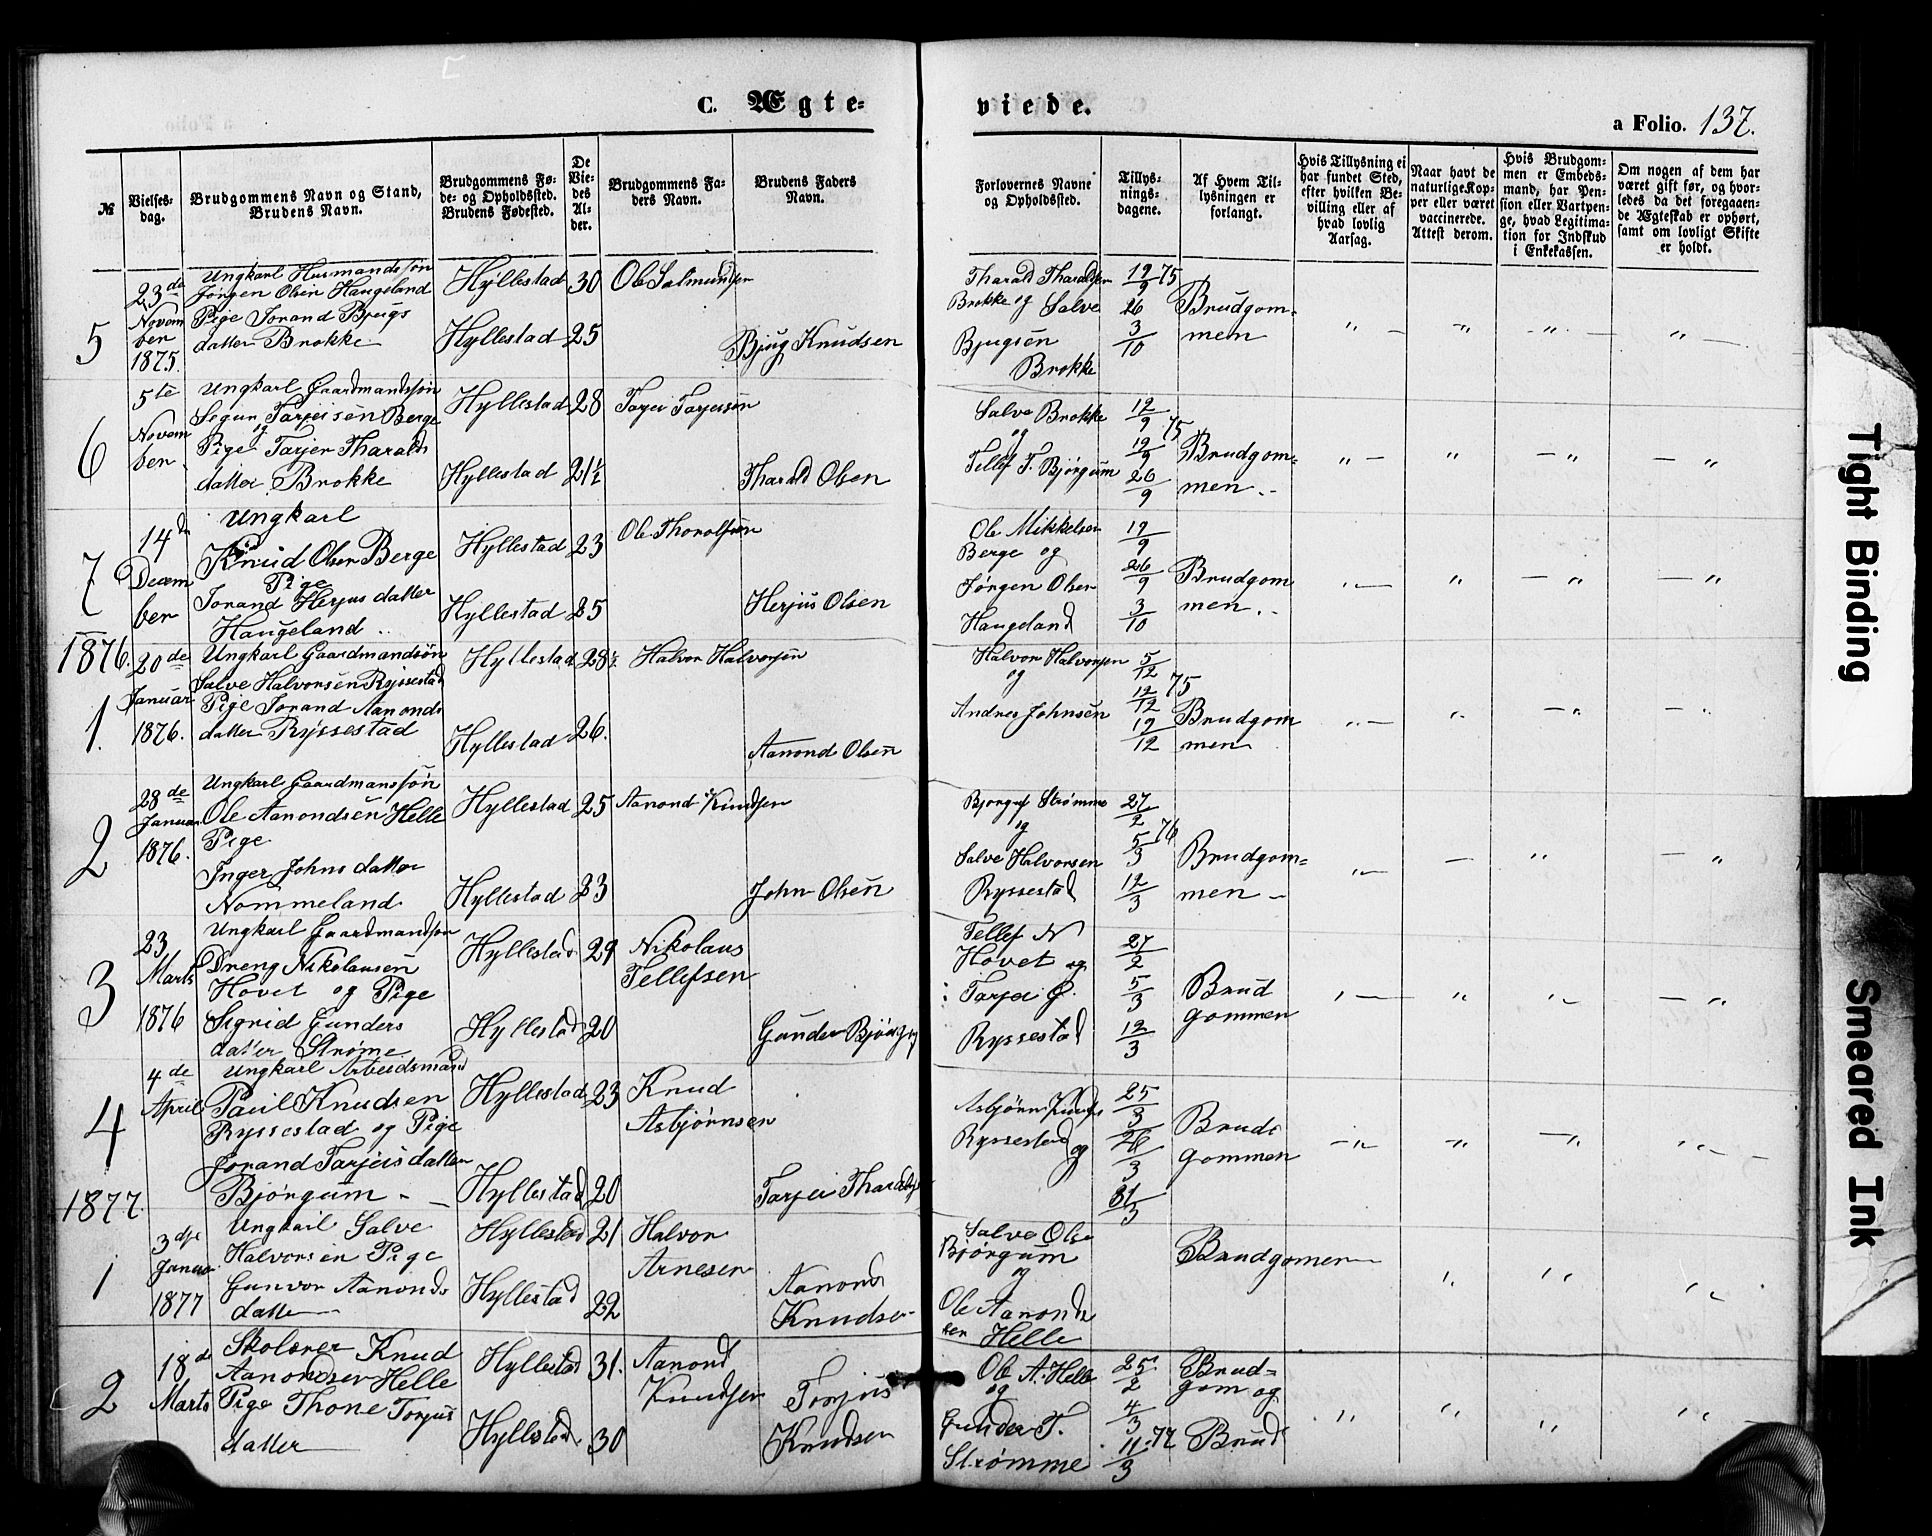 C. Ægte-
viede.
a Folio. 137.
№
Vielses-
dag.
Brudgommens Navn og Stand,
Brudens Navn.
Brudgommens Fø-
de- og Opholdssted.
Brudens Fødested.
De
Vie-
des
Al-
der.
Brudgommens Fa-
ders Navn.
Brudens Faders
Navn.
Forlovernes Navne
og Opholdssted.
Tillys-
nings-
dagene.
Af Hvem Til-
lysningen er
forlangt.
Hvis Tillysning ei
har fundet Sted,
efter hvilken Be-
villing eller af
hvad lovlig
Aarsag.
Naar havt de
naturlige Kop-
per eller været
vaccinerede.
Attest derom.
Hvis Brudgom-
men er Embeds-
mand, har Pen-
sion eller Vartpen-
ge, hvad Legitima-
tion for Indskud
i Enkekassen.
Om nogen af dem har
været gift før, og hvor-
ledes da det foregaaen-
de Ægteskab er ophørt,
samt om lovligt Skifte
er holdt.
5
23de
Novem
ber
1875.
Ungkarl Husmandssøn
Jørgen Olsen Haugeland
Pige Jorand Bjugs
datter Brokke
Hyllestad 30
Hyllestad 25
Ole Salmundsen
Bjug Knudsen
Tharald Tharaldsen
Brokke og Salve
Bjugsen
Brokke
19/9 75
26
3/10
Brudgom-
men
6
5te
Novem
ber
Ungkarl Gaardmandssøn
Segur Tarjeisen Berge
og
Pige Tarjer Tharalds
datter Brokke
Hyllestad 28
Hyllestad 21½
Tarjei Tarjeisen
Tharald Olsen
Salve Brokke
og
Tellef T. Bjørgum
12/9
19/9 75
26/9
Brudgom-
men.-
7
14de
Decem
ber
Ungkarl
Knud Olsen Berge
Pige
Jorand Herjus datter
Haugeland
Hyllestad 23
Hyllestad 25
Ole Thorolfsen
Herjus Olsen
Ole Mikkelsen
Berge og
Jørgen Olsen
Haugeland
19/9
26/9
3/10
Brudgom
men.-
1876.
1.
20de
Januar
1876.
Ungkarl Gaardmandsøn
Salve Halvorsen Ryssestad
Pige Jorand Aanonds
datter Ryssestad
Hyllestad 28½
Hyllestad 26.
Halvor Halvorsen
Aanond Olsen
Halvor Halvorsen
og
Andres Johnsen
5/12
12/12 75
19/12
Brudgom
men
2
28de
Januar
1876.
Ungkarl Gaardmanssøn
Ole Aanondsen Helle
Pige
Inger Johns datter
Nommeland
Hyllestad 25
Hyllestad 23
Aanond Knudsen
John Olsen
Bjorguf Strømme
og
Salve Halvorsen
Ryssestad
27/2
5/3 76
12/3
Brudgom-
men -
3
23
Marts
1876
Ungkarl Gaardmandssøn
Dreng Nikolausen
Hovet og Pige
Sigrid Gunders
datter Strøme
Hyllestad 29
Hyllestad 20
Nikolaus
Tellefsen
Gunder
Tellef N
Hovet og
Tarjei G.
Ryssestad
27/2
5/3
12/3
Brud
gommen
4
4de
April
Ungkarl Arbeidsmand
Paul Knudsen
Ryssestad og Pige
Jorand Tarjeis datter
Bjørgum -
Hyllestad 23
Hyllestad 20
Knud
Asbjørnsen
Tarjei
Asbjørn
Ryssestad
og
25/3
26/3
31/3
Brud
gommen
1877.
1
3die
Januar
1877
Ungkarl Salve
Halvorsen Pige
Gunvor Aanonds
datter
Hyllestad 21
Hyllestad 22
Halvor
Arnesen
Aanond
Knudsen
Salve Olse
Bjørgum
og
Ole Aanond
sen Helle
Brudgomen
2
18de
Marts
Skolærer Knud
Aanondsen Helle
Pige Thone Torjus
datter
Hyllestad 31.
Hyllestad 30
Aanond
Knudsen
Torjus
Knudsen
Ole A. Helle
og
Gunder T.
Strømme
25/2
4/3
11/3 77
Brud-
gom og
Brud
Tight Binding
Smeared Ink